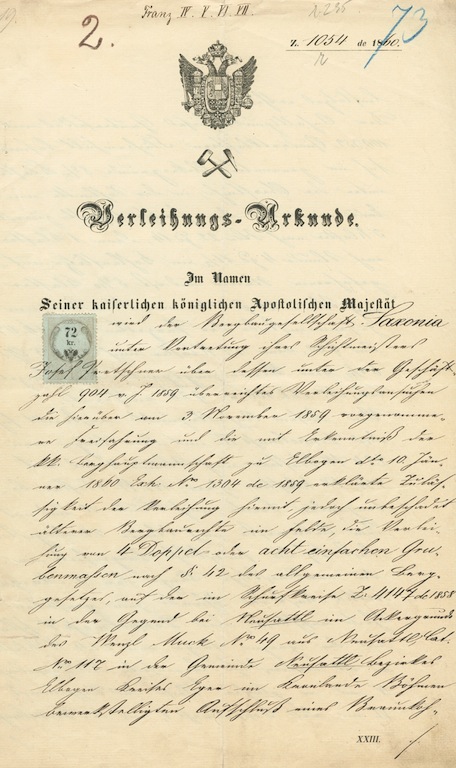 Franz IV. V. VI. VII.
2.
73
Z. 1054 de 1860.
Verleihungs-Urkunde.
Im Namen
Seiner kaiserlichen königlichen Apostolischen Majestät
72
kr.
wird der Bergbaugesellschaft Saxonia
unter Vertretung ihres Schichtmeisters
Josef über dessen unter der Geschäfts-
zahl 904 v. J 1859 überreichtes Verleihungsansuchen
die hierüber am 3. November 1859 vorgenomme-
ne Freifahrung und die mit Erkenntniß der
kk. Berghauptmannschaft zu Elbogen dto 10. Jän-
ner 1860 Exh. Nro 1304 de 1859 erklärte Zuläs-
sigkeit der Verleihung hiemit jedoch unbeschadet
älterer Bergbaurechte im Felde, die Verlei-
hung von 4 Doppel oder acht einfachen Gru-
benmaßen nach §. 42 des allgemeinen Berg-
gesetzes, auf den im Schurfkreise Z. 4144 de 1858
in der Gegend bei Neusattl im Ackergrunde
des Wenzl Muck Nro 49 aus Neusattl, Cat.
Nro 117 in der Gemeinde Neusattl Bezirkes
Elbogen Kreises Eger im Kronlande Böhmen
bewerkstelligten Aufschluß eines Braunkoh-
XXIII.